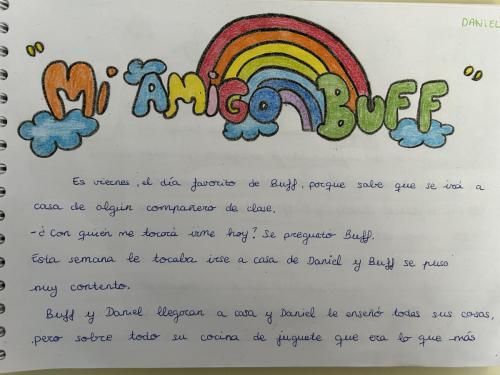 DANIEL
"MI AMIGO BUFF"
Es viernes, el día favorito de Buff, porque sabe que se irá a
casa de algún compañero de clase.
-¿Con quién me tocará irme hoy? Se preguntó Buff.
Esta semana le tocaba irse a casa de Daniel y Buff se puso
muy contento.
Buff y Daniel llegaran a casa y Daniel le enseñó todas sus cosas,
pero sobre todo su cocina de juguete que era lo que más